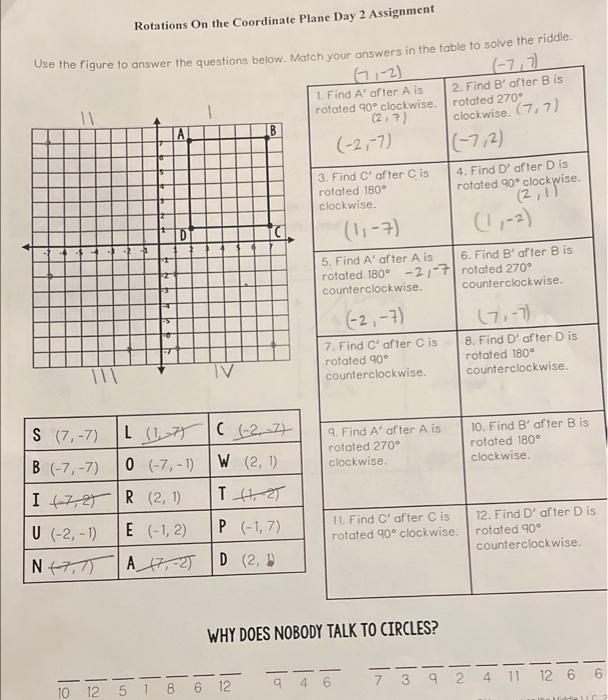 Rotations On the Coordinate Plane Day 2 Assignment
Use the figure to answer the questions below. Match your answers in the table to solve the riddle.
(7,-2)
(-7,7)
1. Find A' after A is rotated 90° clockwise.
(2,7)
(-2,-7)
2. Find B' after B is rotated 270° clockwise. (7,7)
(-7,2)
3. Find C' after C is rotated 180° clockwise.
(1,-7)
4. Find D' after D is rotated 90° clockwise.
(2,1)
(1,-2)
5. Find A' after A is rotated 180° counterclockwise.
-2,-7
(-2,-7)
6. Find B' after B is rotated 270° counterclockwise.
(7,-7)
7. Find C' after C is rotated 90° counterclockwise.
8. Find D' after D is rotated 180° counterclockwise.
9. Find A' after A is rotated 270° clockwise.
10. Find B' after B is rotated 180° clockwise.
11. Find C' after C is rotated 90° clockwise.
12. Find D' after D is rotated 90° counterclockwise.
II
I
A
B
D
C
III
IV
S (7,-7) L (1,-7) C (-2,-7)
B (-7,-7) O (-7,-1) W (2, 1)
I (-7,2) R (2, 1) T (1,-2)
U (-2,-1) E (-1, 2) P (-1, 7)
N (-7,7) A (7,-2) D (2,
WHY DOES NOBODY TALK TO CIRCLES?
10 12 5 1 8 6 12 9 4 6 7 3 9 2 4 11 12 6 6